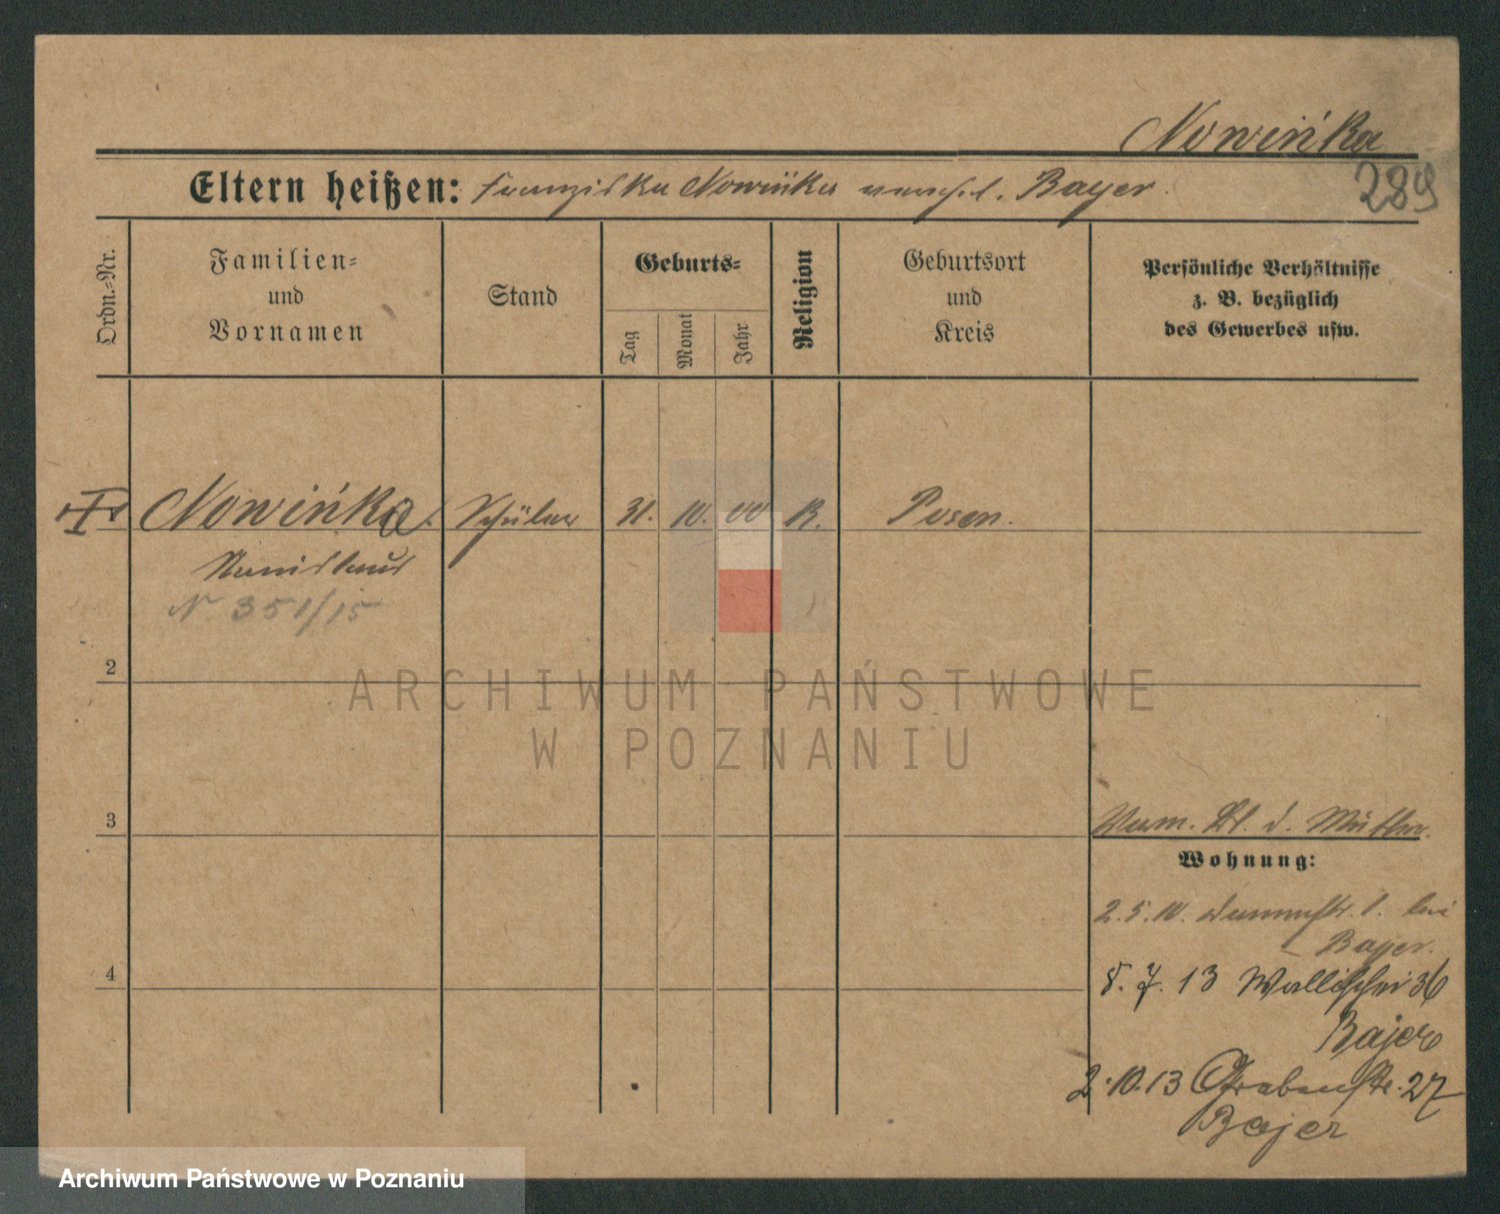 Nowińka
289
Eltern heißen: Franziska Nowińka verehel. Bayer.
Ordn.-Nr.
Familien- und Vornamen
Stand
Geburts-
Tag
Monat
Jahr
Religion
Geburtsort und Kreis
Persönliche Verhältnisse
z. B. bezüglich
des Gewerbes usw.
I Nowińka Schüler 31. 10. 00 K. Posen.
Stanislaus
N 351/15
2
ARCHIWUM PAŃSTWOWE
W POZNANIU
3
d. Mutter.
Wohnung:
2.5.10. Dammstr. 1. bei
Bayer.
8. 7. 13 Wallischei 36
4
Bajer
2.10.13 Grabenstr. 27
Bajer
Archiwum Państwowe w Poznaniu